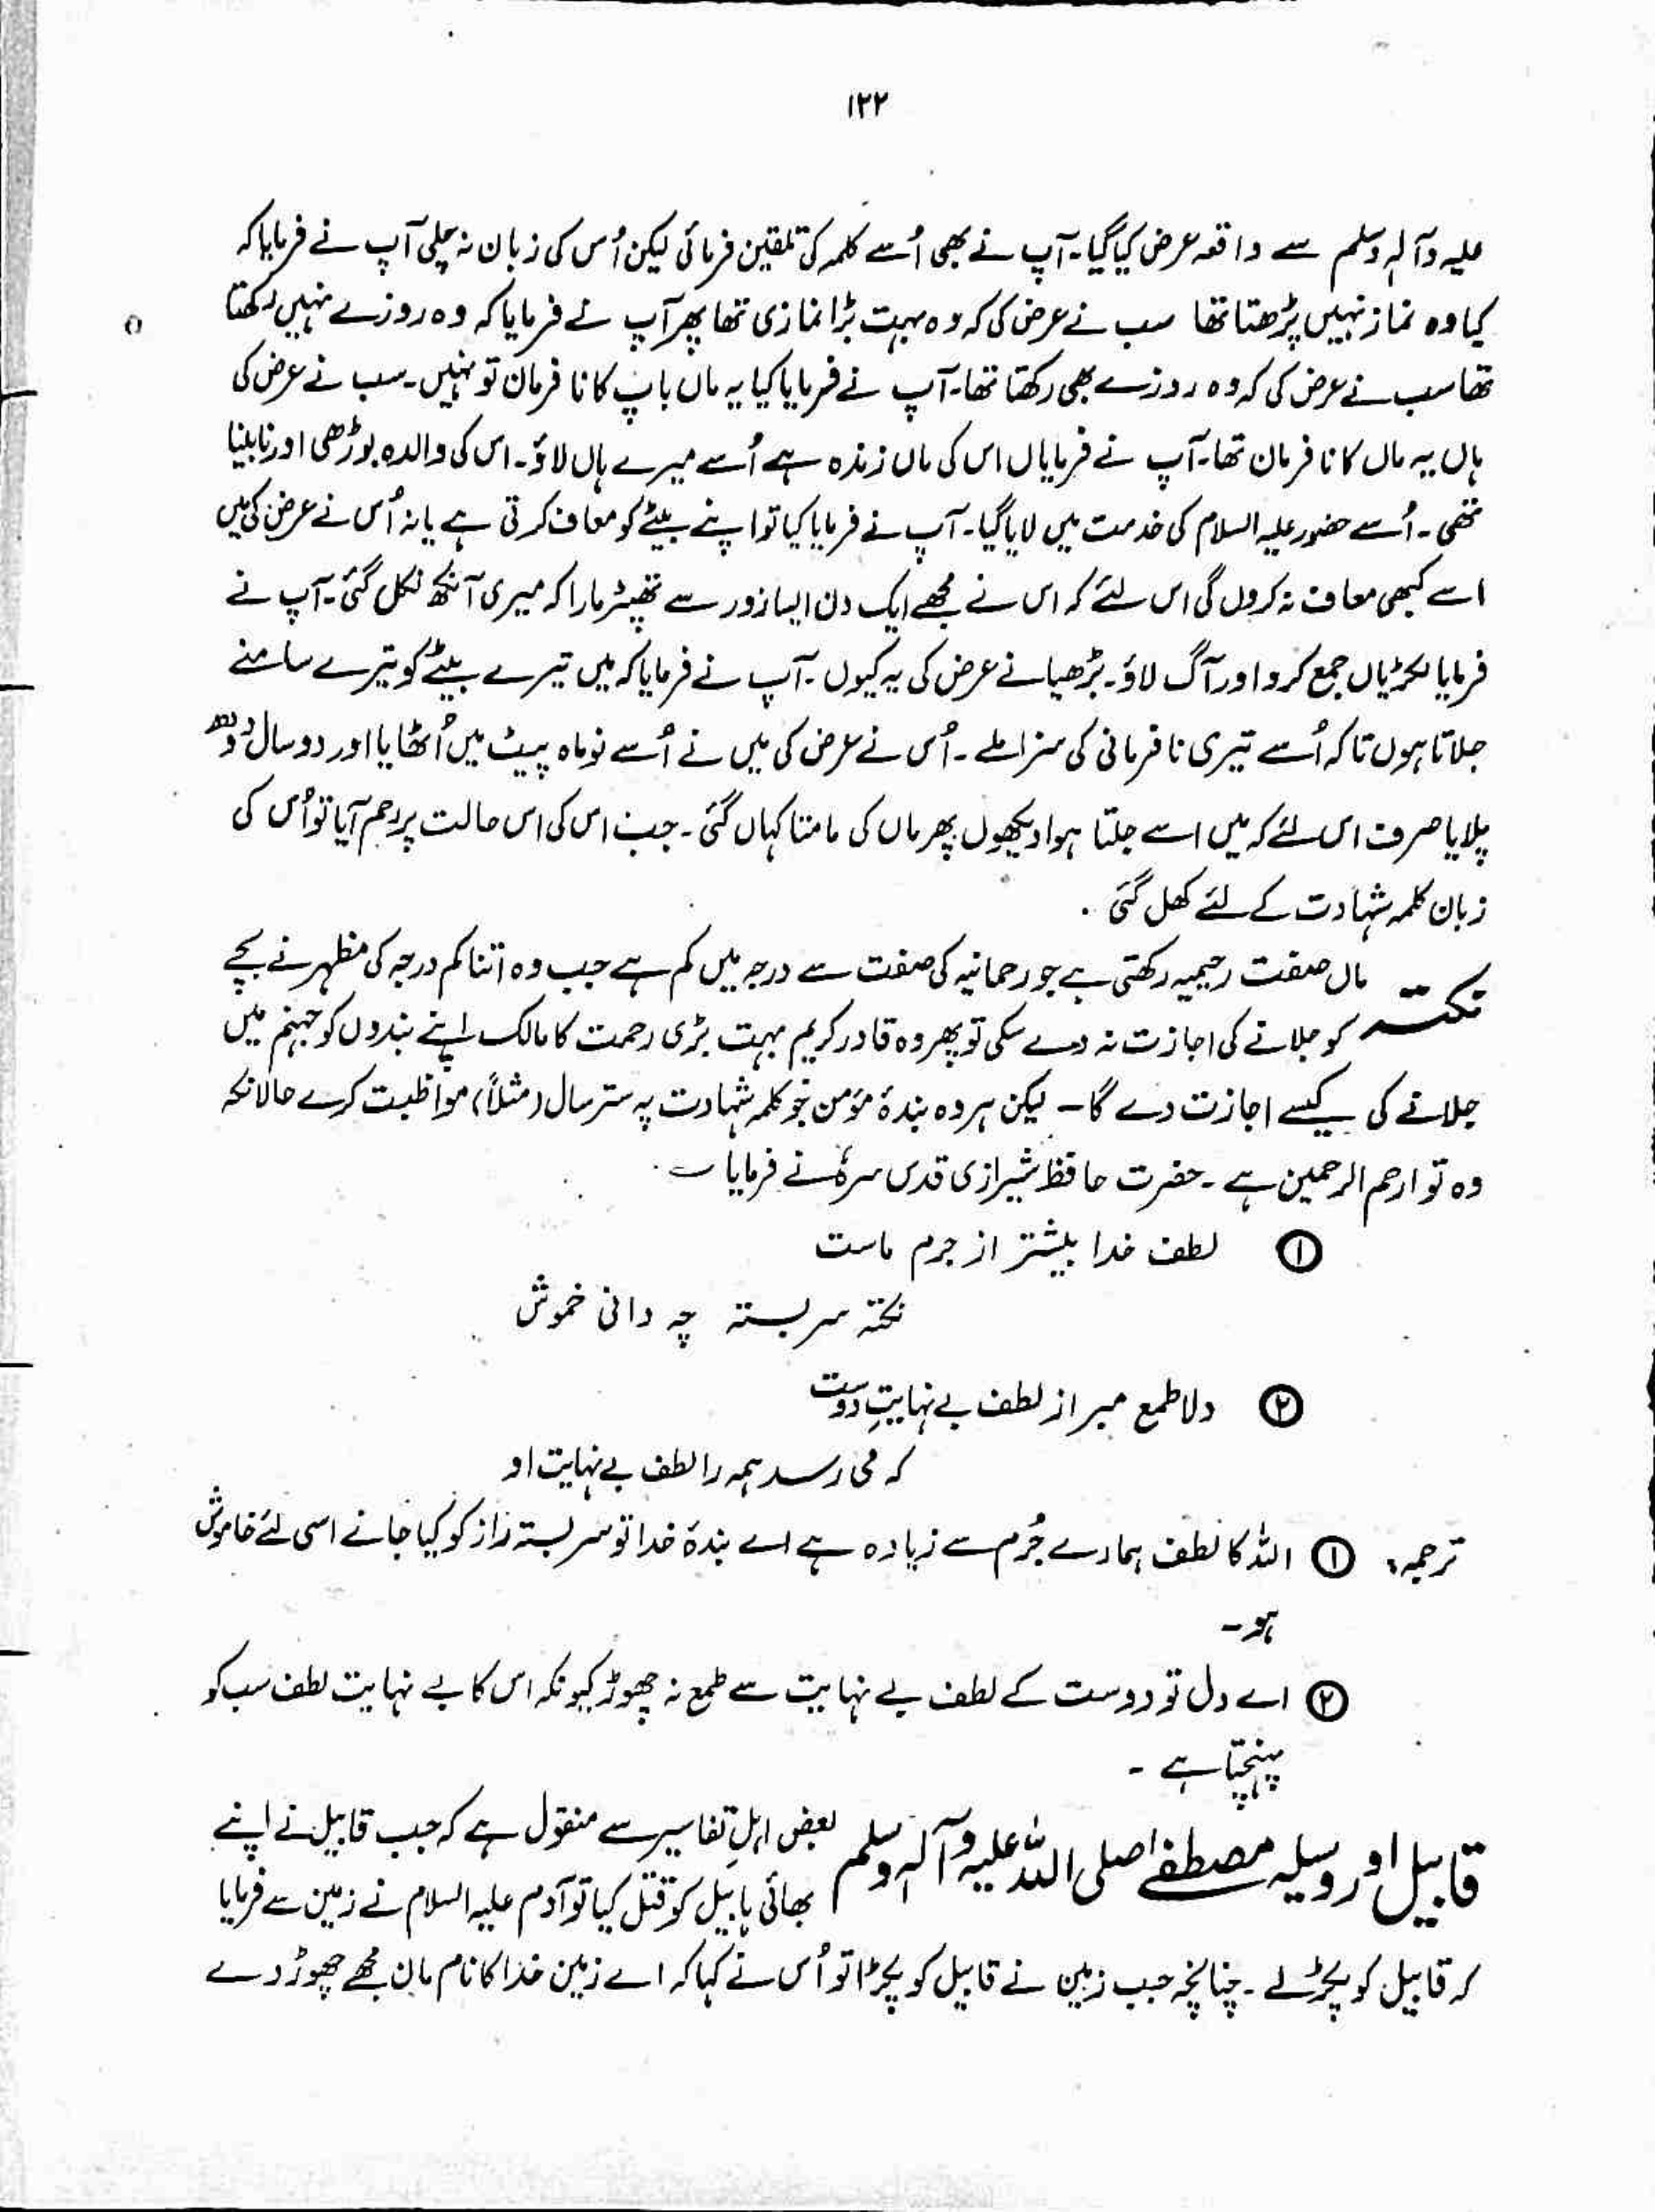 ۱۲۲
علیہ وآلہٖ وسلم سے واقعہ عرض کیا گیا۔ آپ نے بھی اُسے کلمہ کی تلقین فرمائی لیکن اُس کی زبان نہ چلی آپ نے فرمایا کہ
کیا وہ نماز نہیں پڑھتا تھا سب نے عرض کی کہ وہ بہت بڑا نمازی تھا پھر آپ نے فرمایا کہ وہ روزے نہیں رکھتا
تھا سب نے عرض کی کہ وہ روزے بھی رکھتا تھا۔ آپ نے فرمایا کیا یہ ماں باپ کا نا فرمان تو نہیں۔ سب نے عرض کی
ہاں یہ ماں کا نا فرمان تھا۔ آپ نے فرمایا اس کی ماں زندہ ہے اُسے میرے ہاں لاؤ۔ اس کی والدہ بوڑھی اور نابینا
تھی۔ اُسے حضور علیہ السلام کی خدمت میں لایا گیا۔ آپ نے فرمایا کیا تو اپنے بیٹے کو معاف کرتی ہے یا نہ اُس نے عرض کی میں
اسے کبھی معاف نہ کروں گی اس لئے کہ اس نے مجھے ایک دن ایسا زور سے تھپڑ مارا کہ میری آنکھ نکل گئی۔ آپ نے
فرمایا لکڑیاں جمع کرو اور آگ لاؤ۔ بڑھیا نے عرض کی یہ کیوں۔ آپ نے فرمایا کہ میں تیرے بیٹے کو تیرے سامنے
جلاتا ہوں تاکہ اُسے تیری نافرمانی کی سزا ملے۔ اُس نے عرض کی میں نے اُسے نو ماہ پیٹ میں اُٹھایا اور دو سال دودھ
پلایا صرف اس لئے کہ میں اسے جلتا ہوا دیکھوں پھر ماں کی مامتا کہاں گئی۔ جب اس کی اس حالت پر رحم آیا تو اُس کی
زبان کلمہ شہادت کے لئے کھل گئی۔
نکتہ ماں صفت رحیمیہ رکھتی ہے جو رحمانیہ کی صفت سے درجہ میں کم ہے جب وہ اتنا کم درجہ کی مظہر نے بچے
کو جلانے کی اجازت نہ دے سکی تو پھر وہ قادر کریم بہت بڑی رحمت کا مالک اپنے بندوں کو جہنم میں
جلانے کی کیسے اجازت دے گا۔ لیکن ہر وہ بندۂ مؤمن جو کلمہ شہادت پہ ستر سال (مثلاً) مواظبت کرے حالانکہ
وہ تو ارحم الرحمین ہے۔ حضرت حافظ شیرازی قدس سرہٗ نے فرمایا ؎
① لطف خدا بیشتر از جرم ماست
نکتہ سربستہ چہ دانی خموش
② دلا طمع مبر از لطف بے نہایتِ دوست
کہ می رسد ہمہ را لطف بے نہایت او
ترجمہ: ① اللہ کا لطف ہمارے جُرم سے زیادہ ہے اے بندۂ خدا تو سربستہ راز کو کیا جانے اسی لئے خاموش
ہو۔
② اے دل تو دوست کے لطف بے نہایت سے طمع نہ چھوڑ کیونکہ اس کا بے نہایت لطف سب کو
پہنچتا ہے۔
قابیل اور وسیلہ مصطفےٰ صلی اللہ علیہ وآلہٖ وسلم بعض اہلِ تفاسیر سے منقول ہے کہ جب قابیل نے اپنے
بھائی ہابیل کو قتل کیا تو آدم علیہ السلام نے زمین سے فرمایا
کہ قابیل کو پکڑ لے۔ چنانچہ جب زمین نے قابیل کو پکڑا تو اُس نے کہا کہ اے زمین خدا کا نام مان مجھے چھوڑ دے